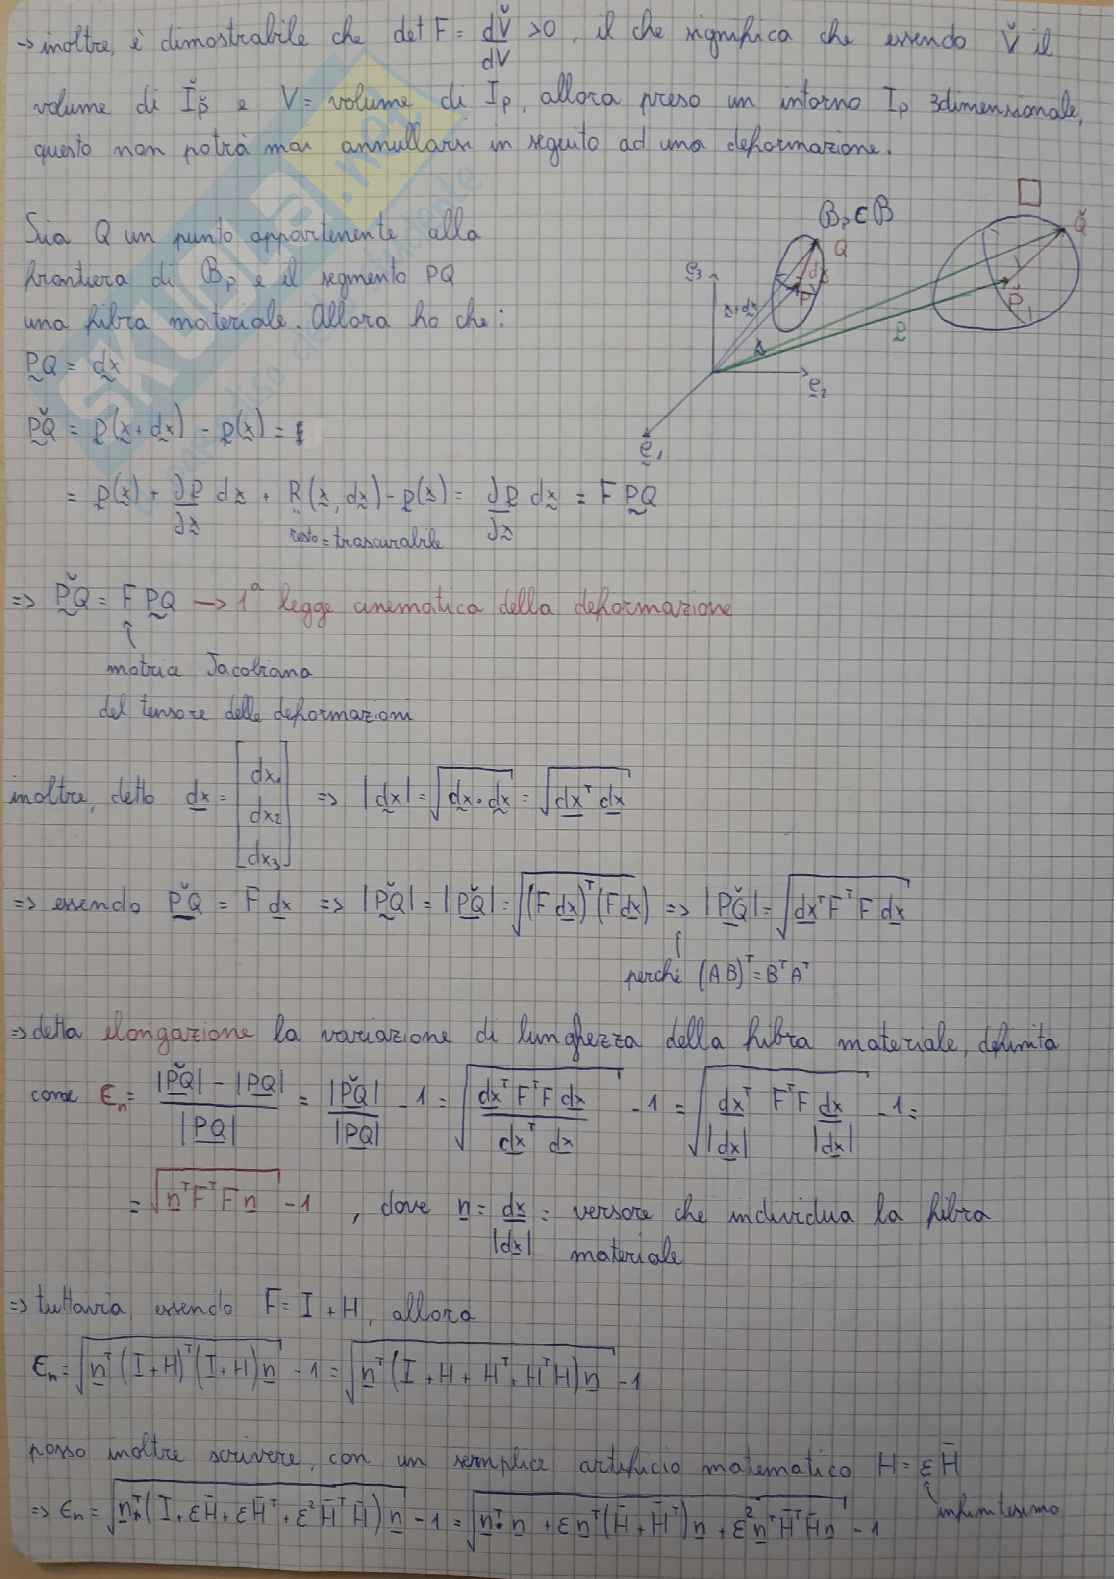 → inoltre, è dimostrabile che det F = dV̌/dV > 0, il che significa che essendo V̌ il
volume di Ǐp̌ e V = volume di Ip, allora preso un intorno Ip 3dimensionale,
questo non potrà mai annullarsi in seguito ad una deformazione.
Sia Q un punto appartenente alla
frontiera di Bp e il segmento PQ
una fibra materiale. Allora ho che:
PQ = dx
P̌Q̌ = p(x+dx) - p(x) =
= p(x) + ∂p/∂x dx + R(x, dx) - p(x) = ∂p/∂x dx = F PQ
resto = trascurabile
Bp ⊂ B
Q
dx
P
e3
x+dx
x
e2
e1
p
P̌
Q̌
⇒ P̌Q = F PQ → 1ª legge cinematica della deformazione
matrice Jacobiana
del tensore delle deformazioni
inoltre, detto dx = [dx1 dx2 dx3] ⇒ |dx| = √(dx · dx) = √(dxᵀ dx)
⇒ essendo P̌Q = F dx ⇒ |P̌Q| = |P̌Q| = √((F dx)ᵀ (F dx)) ⇒ |P̌Q| = √(dxᵀ Fᵀ F dx)
perché (AB)ᵀ = Bᵀ Aᵀ
⇒ detta elongazione la variazione di lunghezza della fibra materiale, definita
come ϵn = (|P̌Q| - |PQ|)/|PQ| = |P̌Q|/|PQ| - 1 = √(dxᵀ Fᵀ F dx / dxᵀ dx) - 1 = √(dxᵀ/|dx| Fᵀ F dx/|dx|) - 1 =
= √(nᵀ Fᵀ F n) - 1, dove n = dx/|dx| = versore che individua la fibra
materiale
⇒ tuttavia, essendo F = I + H, allora
ϵn = √(nᵀ (I + H)ᵀ (I + H) n) - 1 = √(nᵀ (I + H + Hᵀ + Hᵀ H) n) - 1
posso inoltre scrivere, con un semplice artificio matematico H = ε H̄
infinitesimo
⇒ ϵn = √(nᵀ (I + ε H̄ + ε H̄ᵀ + ε² H̄ᵀ H̄) n) - 1 = √(nᵀ n + ε nᵀ (H̄ + H̄ᵀ) n + ε² nᵀ H̄ᵀ H̄ n) - 1
SKUOLA.net